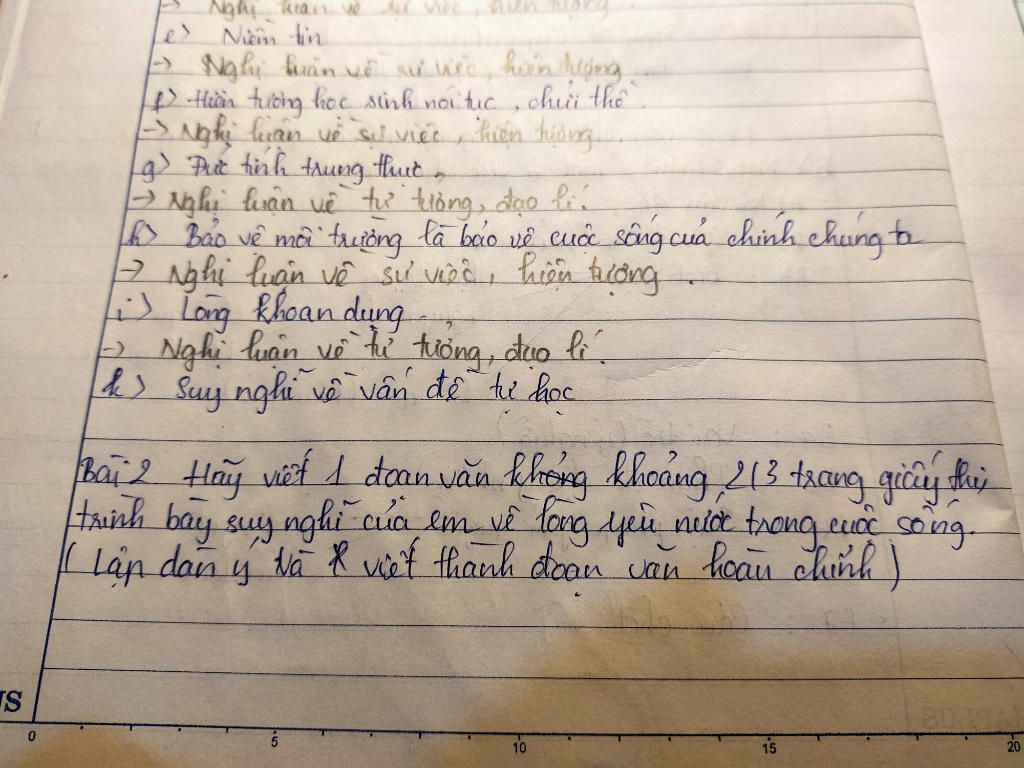 -> Nghị luận về sự việc, hiện tượng.
e> Niềm tin
-> Nghị luận về sự việc, hiện tượng.
f> Hiện tượng học sinh nói tục, chửi thề.
-> Nghị luận về sự việc, hiện tượng.
g> Đức tính trung thực.
-> Nghị luận về tư tưởng, đạo lí.
h> Bảo vệ môi trường là bảo vệ cuộc sống của chính chúng ta
-> Nghị luận về sự việc, hiện tượng.
i> Lòng khoan dung.
-> Nghị luận về tư tưởng, đạo lí.
k> Suy nghĩ về vấn đề tự học
Bài 2 Hãy viết 1 đoạn văn không khoảng 2/3 trang giấy thi,
trình bày suy nghĩ của em về lòng yêu nước trong cuộc sống.
(Lập dàn ý và viết thành đoạn văn hoàn chỉnh)
US
0 5 10 15 20